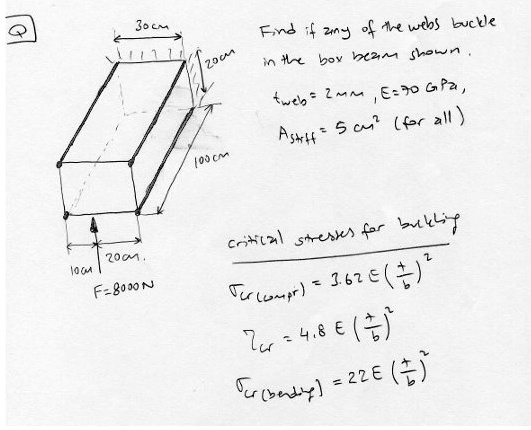 Q
30cm
20cm
100cm
10cm
20cm.
F=8000N
Find if any of the webs buckle
in the box beam shown.
tweb = 2mm, E=70 GPa,
Astiff = 5 cm² (for all)
critical stresses for buckling
σcr(compr) = 3.62 E (t/b)²
τcr = 4.8 E (t/b)²
σcr(bending) = 22E (t/b)²